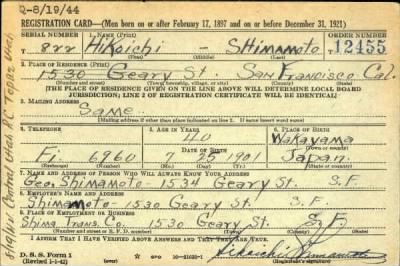 2-8/19/44
REGISTRATION CARD—(Men born on or after February 17, 1897 and on or before December 31, 1921)
SERIAL NUMBER 1. NAME (Print) ORDER NUMBER
822 Hikoichi - Shimamoto 12455
2. PLACE OF RESIDENCE (Print)
1530 Geary St. San Francisco Cal.
(Number and street) (Town, township, village, or city) (County) (State)
[THE PLACE OF RESIDENCE GIVEN ON THE LINE ABOVE WILL DETERMINE LOCAL BOARD
JURISDICTION; LINE 2 OF REGISTRATION CERTIFICATE WILL BE IDENTICAL]
3. MAILING ADDRESS
Same
[Mailing address if other than place indicated on line 2. If same insert word same]
4. TELEPHONE 5. AGE IN YEARS 6. PLACE OF BIRTH
40 Wakayama
DATE OF BIRTH
Fi 6960 7 25 1901 Japan
(Exchange) (Number) (Mo.) (Day) (Yr.) (State or country)
7. NAME AND ADDRESS OF PERSON WHO WILL ALWAYS KNOW YOUR ADDRESS
Geo. Shimamoto 1534 Geary St. S.F.
8. EMPLOYER'S NAME AND ADDRESS
Shimamoto 1530 Geary St. S.F.
9. PLACE OF EMPLOYMENT OR BUSINESS
Shima Trans. Co. 1530 Geary St. S.F.
(Number and street or R. F. D. number) (Town) (County) (State)
I AFFIRM THAT I HAVE VERIFIED ABOVE ANSWERS AND THAT THEY ARE TRUE.
D. S. S. Form 1
(Revised 1-1-42) (over) 16—21630-1 Hikoichi Shimamoto
(Registrant's signature)
8/19/44 Central Utah RC Topaz Utah